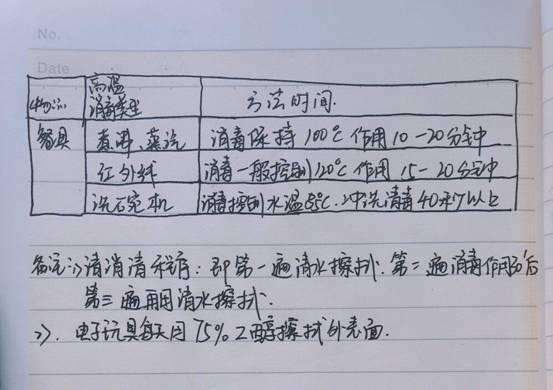 No.
Date
物品 高温消毒类型 方法时间.
餐具 煮沸、蒸汽 消毒保持100℃作用10-20分钟
红外线 消毒一般控制120℃作用15-20分钟
洗碗机 消毒控制水温85℃.冲洗消毒40秒以上
备注:1>清消清程序:即第一遍清水擦拭.第二遍消毒作用30'后
第三遍再用清水擦拭.
2>.电子玩具每天用75%乙醇擦拭外表面.